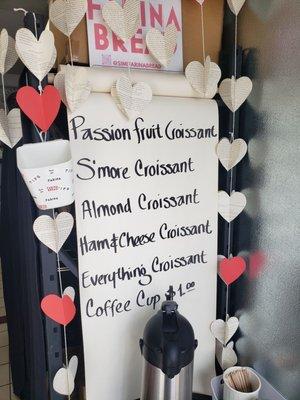 FARINA
BREAD
@SIMFARINABREAD
Passion fruit Croissant
S'more Croissant
Almond Croissant
Ham & Cheese Croissant
Everything Croissant
Coffee Cup $1.00
TIPS